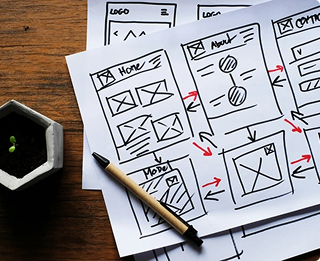 LOGO
LOGO
Home
About
CONTAC
Model